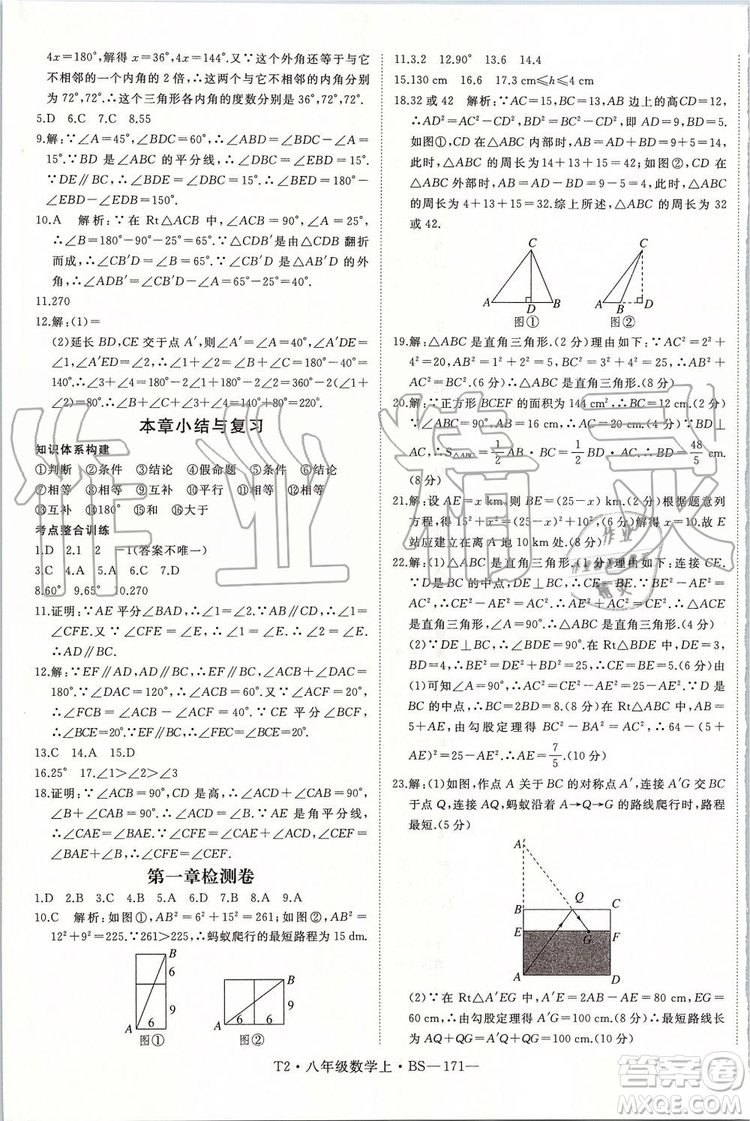 4x=180°,解得x=36°,4x=144°.又∵这个外角还等于与它
不相邻的一个内角的2倍,∴这两个与它不相邻的内角分别
为72°,72°.∴这个三角形各内角的度数分别是36°,72°,72°.
5.D 6.C 7.C 8.55
9.解:∵∠A=45°,∠BDC=60°,∴∠ABD=∠BDC-∠A=
15°.∵BD是∠ABC的平分线,∴∠DBC=∠ABD=15°.
∵DE∥BC,∴∠BDE=∠DBC=15°,∴∠BED=180°-
∠EBD-∠BDE=150°.
10.A 解析:∵在Rt△ACB中,∠ACB=90°,∠A=25°,
∴∠B=180°-90°-25°=65°.∵△CDB′由△CDB翻折
而成,∴∠CB′D=∠B=65°.∵∠CB′D是△AB′D的外
角,∴∠ADB′=∠CB′D-∠A=65°-25°=40°.
11.270
12.解:(1)=
(2)延长BD,CE交于点A′,则∠BA′C=∠A=40°.∵∠A′DE
=∠1,∠A′ED=∠2,∴∠1+∠2=180°-∠A′=180°-40°=
140°,∴∠BDE+∠CED=180°-∠1+180°-∠2=360°-(∠1
+∠2)=360°-140°=220°.
本章小结与复习
知识体系构建
①判断 ②条件 ③结论 ④假命题 ⑤条件 ⑥结论
⑦相等 ⑧相等 ⑨互补 ⑩平行 ⑪相等 ⑫相等
⑬互补 ⑭180° ⑮和 ⑯大于
考点整合训练
1.D 2.1 2 -1(答案不唯一)
3.C 4.A 5.A 6.D 7.D
8.60° 9.65° 10.270
11.证明:∵AE平分∠BAD,∴∠1=∠2.∵AB∥CD,∴∠1
=∠CFE.∵∠CFE=∠E,∴∠1=∠E,∴∠2=∠E,
∴AD∥BC.
12.解:∵EF∥AD,AD∥BC,∴EF∥BC,∴∠ACB+∠DAC=
180°.∵∠DAC=120°,∴∠ACB=60°.∵∠ACF=20°,
∴∠FCB=∠ACB-∠ACF=40°.∵CE平分∠BCF,
∴∠BCE=20°.∵EF∥BC,∴∠FEC=∠BCE=20°.
13.C 14.A 15.D
16.25° 17.∠1>∠2>∠A
18.证明:∵∠ACB=90°,CD是高,∴∠ACD+∠CAB=90°,
∠B+∠CAB=90°,∴∠ACD=∠B.∵AE是角平分线,
∴∠CAE=∠BAE.∵∠CEF=∠BAE+∠B,∠CFE=
∠CAE+∠ACD,∴∠CFE=∠CEF.
第一章检测卷
1.D 2.B 3.C 4.D 5.A 6.A 7.B 8.A 9.A
10.C 解析:如图①,AB²=6²+15²=261;如图②,AB²=
12²+9²=225.∵261>225,∴蚂蚁爬行的最短路程为15 dm.
B 6 9 A 6 图①
B 9 A 6 6 图②
11.3.2 12.90° 13.6 14.4
15.130 cm 16.4 17.3 cm≤h≤4 cm
18.32或42 解析:∵AC=15,BC=13,AB边上的高CD=12,
∴AD²=AC²-CD²,BD²=BC²-CD²,∴AD=9,BD=5.如
图①,CD在△ABC内部时,AB=AD+BD=9+5=14,
此时,△ABC的周长为14+13+15=42;如图②,CD在
△ABC外部时,AB=AD-BD=9-5=4,此时,△ABC
的周长为4+13+15=32.综上所述,△ABC的周长为32
或42.
C A D B 图①
C A B D 图②
19.解:△ABC是直角三角形.(2分)理由如下:∵AC²=2²+
4²=20,AB²=1²+2²=5,BC²=3²+4²=25,∴AB²+AC²
=BC².(6分)∴△ABC是直角三角形.(8分)
20.解:∵正方形BCEF的面积为144 cm²,∴BC=12 cm.(2分)
∵∠ABC=90°,AB=16 cm,∴AC=20 cm.(4分)∵BD
⊥AC,∴S△ABC=1/2AB·BC=1/2BD·AC,∴BD=48/5
cm.(8分)
21.解:设AE=x km,则BE=(25-x) km.(1分)根据题意列
方程,得15²+x²=(25-x)²+10²,解得x=10.故E
站应建立在离A地10 km处.(8分)
22.解:(1)△ABC是直角三角形.(1分)理由如下:连接CE.
∵D是BC的中点,DE⊥BC,∴CE=BE.(2分)∵BE²-
AE²=AC²,∴CE²-AE²=AC²,∴AE²+AC²=CE²,∴△AEC
是直角三角形,∠A=90°,∴△ABC是直角三角形.(4分)
(2)∵DE⊥BC,∴∠BDE=90°.在Rt△BDE中,DE=3,
BD=4,∴BE²=DE²+BD²=25,∴BE=5=CE.(6分)由
(1)可知∠A=90°,∴AC²=EC²-AE²=25-AE².∵D是BC
的中点,BD=4,∴BC=2BD=8.(8分)在Rt△ABC中,BA=
5+AE,由勾股定理得BC²-BA²=AC²,∴64-(5+
AE)²=25-AE²,∴AE=7/5.(10分)
23.解:(1)如图,作点A关于BC的对称点A′,连接A′G交BC
于点Q,连接AQ,蚂蚁沿着A→Q→G的路线爬行时,路程
最短.(5分)
A′ B Q C E G F A D
(2)∵在Rt△A′EG中,A′E=2AB-AE=80 cm,EG=
60 cm,由勾股定理得A′G=100 cm,∴最短路程为
AQ+QG=A′Q+QG=A′G=100 cm.(10分)
T2·八年级数学上·BS—171—
作业精灵
答案圈
MXQE.COM